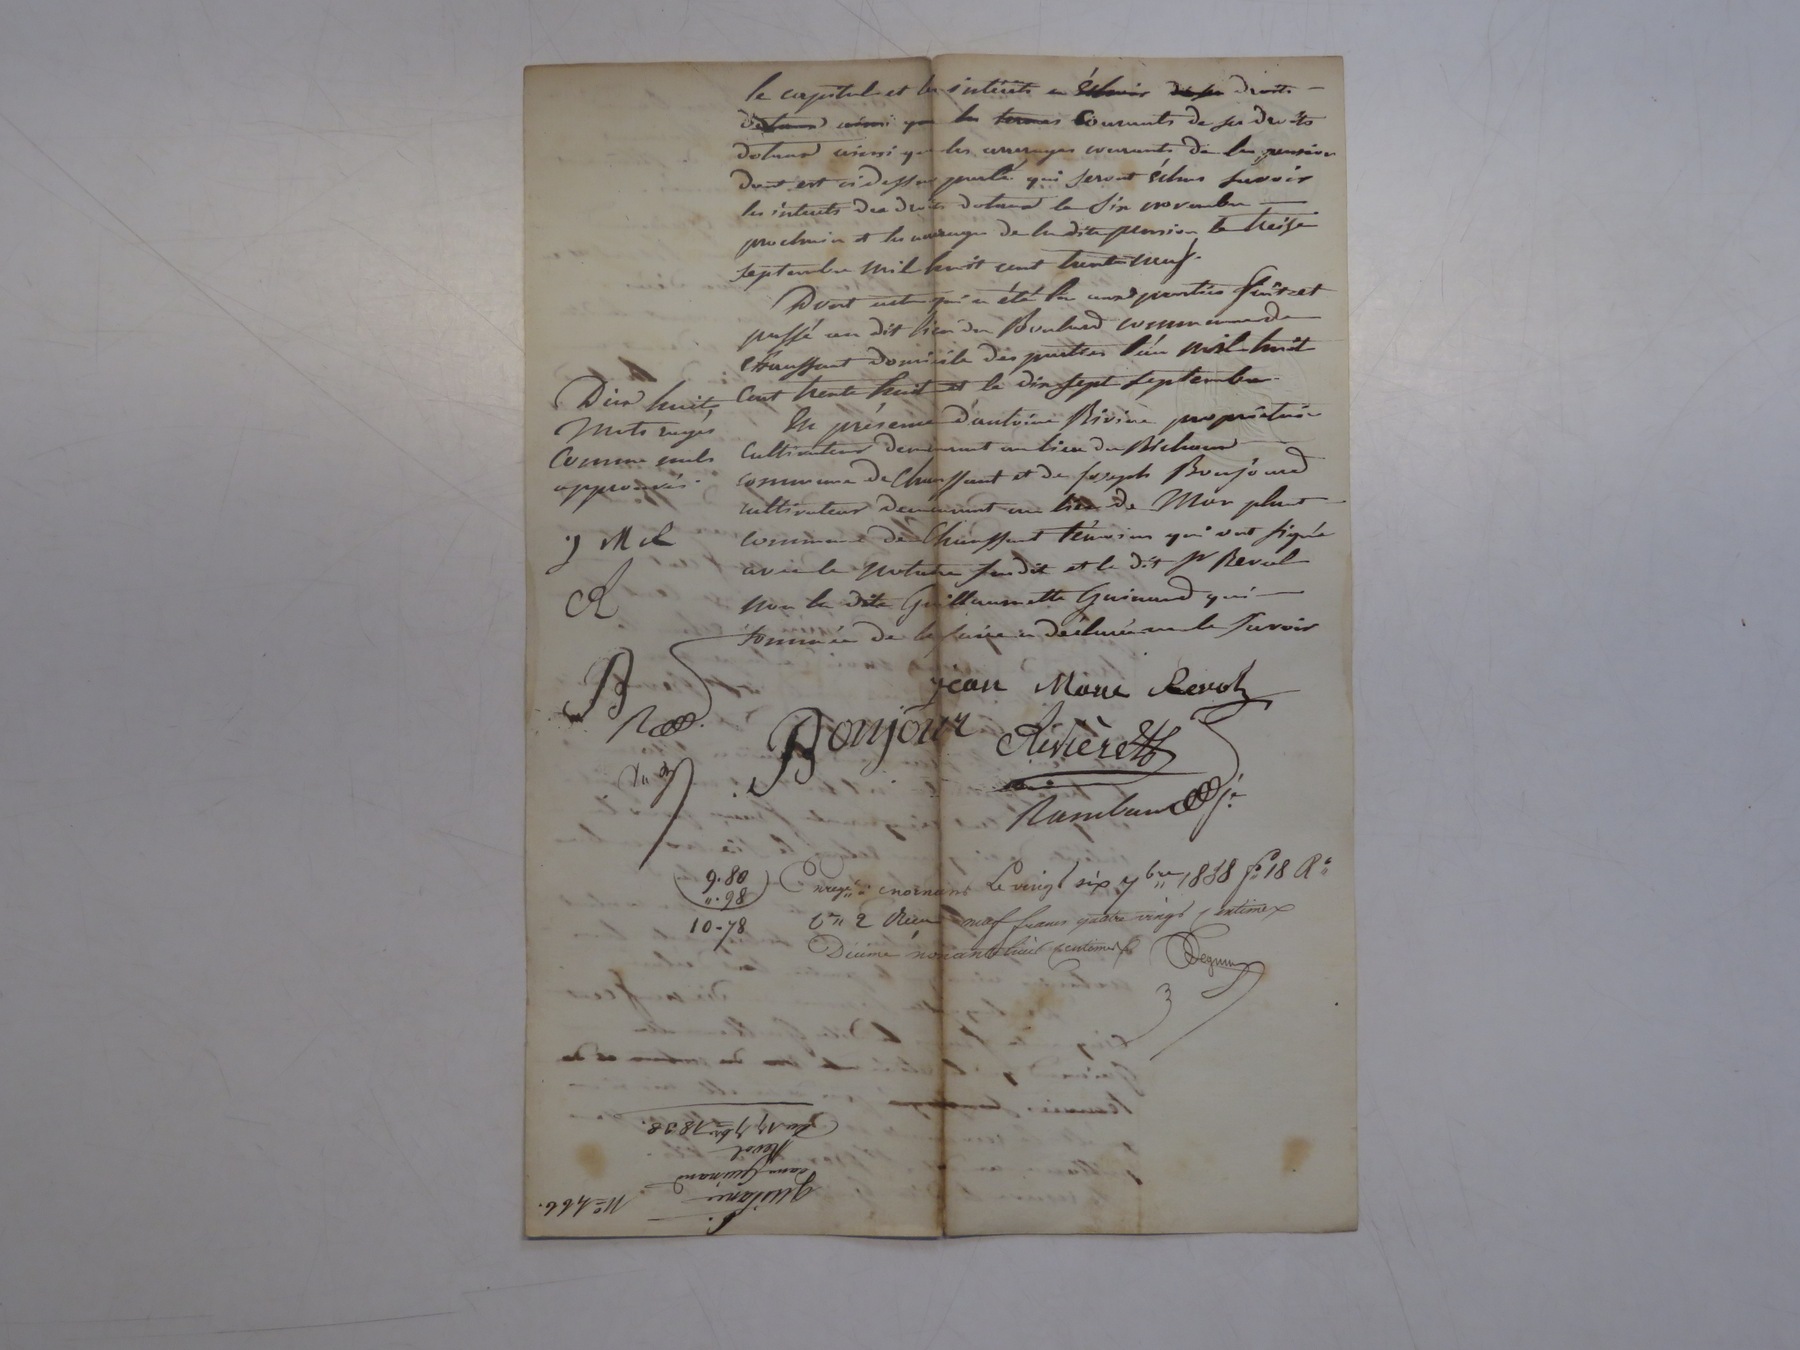 le capital et les intérêts en échoir de ses droits
dotaux ainsi que les termes courants de ses droits
dotaux ainsi que les arrerages courants de la pension
dont est ci dessus parlé qui seront échus savoir
les intérêts des droits dotaux le six novembre
prochain et les arrerages de la dite pension le treize
septembre mil huit cent trente neuf.
Dont acte qui a été lu aux parties fait et
passé au dit lieu du commune de
Chaussant domicile des parties l'an mil huit
cent trente huit et le dix sept septembre
En présence d'antoine Rivière propriétaire
cultivateur demeurant au lieu du Richoud
commune de Chaussant et de joseph Bonjourd
cultivateur demeurant au lieu de Mon plant
commune de Chaussant témoins qui ont signé
avec le notaire susdit et le dit Sr Revol
non la dite Guillaumette Guinand qui
sommée de le faire a déclaré ne le savoir
Dix huit
mots rayés
comme nuls
approuvés.
J M R
R
B
jean Marie Revol
Bonjour Rivière
Rambaud
9.80
".98
10-78
Enregé à mornant Le vingt six 7bre 1838 fo 18 Ro
Cs 2 Reçu neuf francs quatre vingt centimes
Décime nonante huit centimes
Du 17 7bre 1838.
Revol
Guinand
Quittance
No 466.